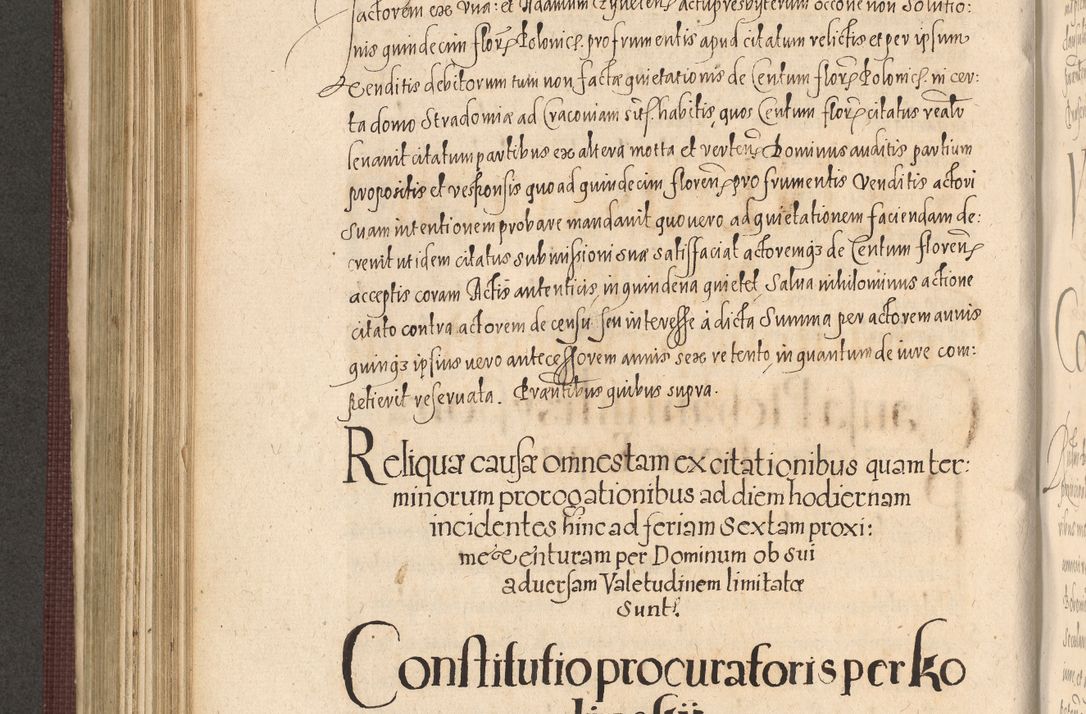 actorem ex una: et Adamum actu presbyterum occone non solutio:
nis quindecim floren Polonic. pro frumentis apud citatum relictis et per ipsum
Venditis debitorum tum non factæ quietationis de Centum floren Polonic. in cer:
ta domo Stradomiæ ad Cracoviam sitis. habitis, quos Centum floren citatus realiter
levavit citatum partibus ex altera motta et verten: Dominus auditis partium
propositis et responsis quo ad quindecim floren: pro frumentis Venditis actori
suam intentionem probare mandavit quo vero ad quietationem faciendam de:
crevit ut idem citatus submissioni suæ satisfaciat actoremq3 de Centum floren:
acceptis coram Actis autenticis, in quindena quietet, salva nihilominus actione
citato contra actorem de censu seu interesse à dicta summa per actorem annis
quinq3 ipsius vero antecessorem annis sex retento, in quantum de iure com:
petierit reservata. Præsentibus quibus supra.
Reliquæ causæ omnes tam ex citationibus quam ter:
minorum prorogationibus ad diem hodiernam
incidentes hinc ad feriam sextam proxi:
me venturam per Dominum ob sui
adversam Valetudinem limitatæ
sunt.
Constitutio procuratoris per ko